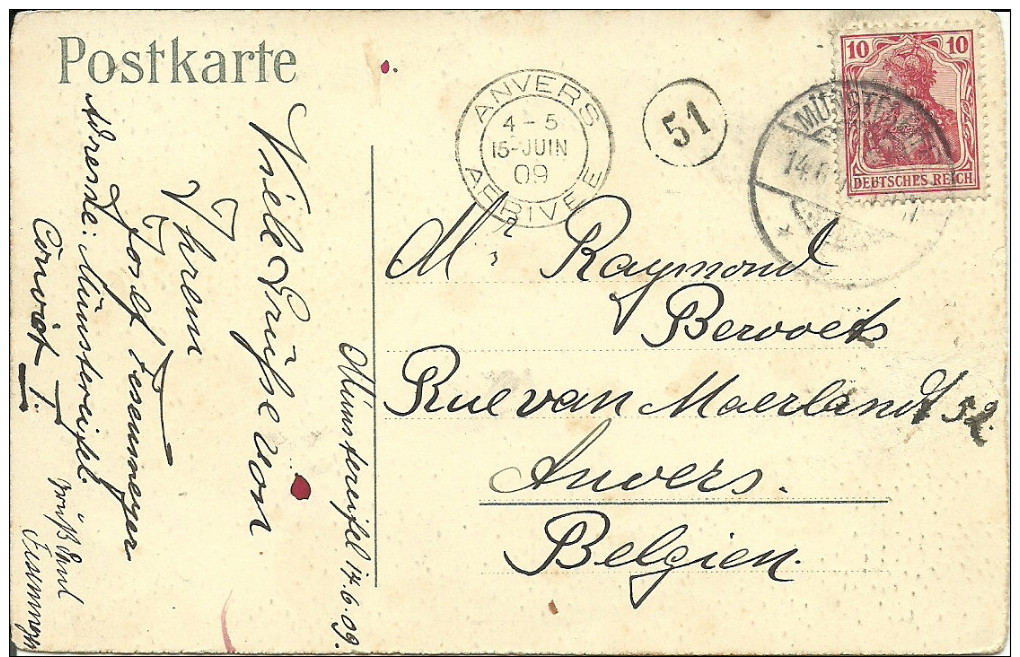 Postkarte
ANVERS
4-5
15-JUIN
09
ARRIVEE
51
10 10
DEUTSCHES REICH
14.6
Mr Raymond
Bervoets
Rue van Maerlandt 52
Anvers.
Belgien.
Münstereifel 14.6.09.
Viele Grüße von
Ihrem
Josef Fesenmeyer
Adresse: Münstereifel.
Convict I.